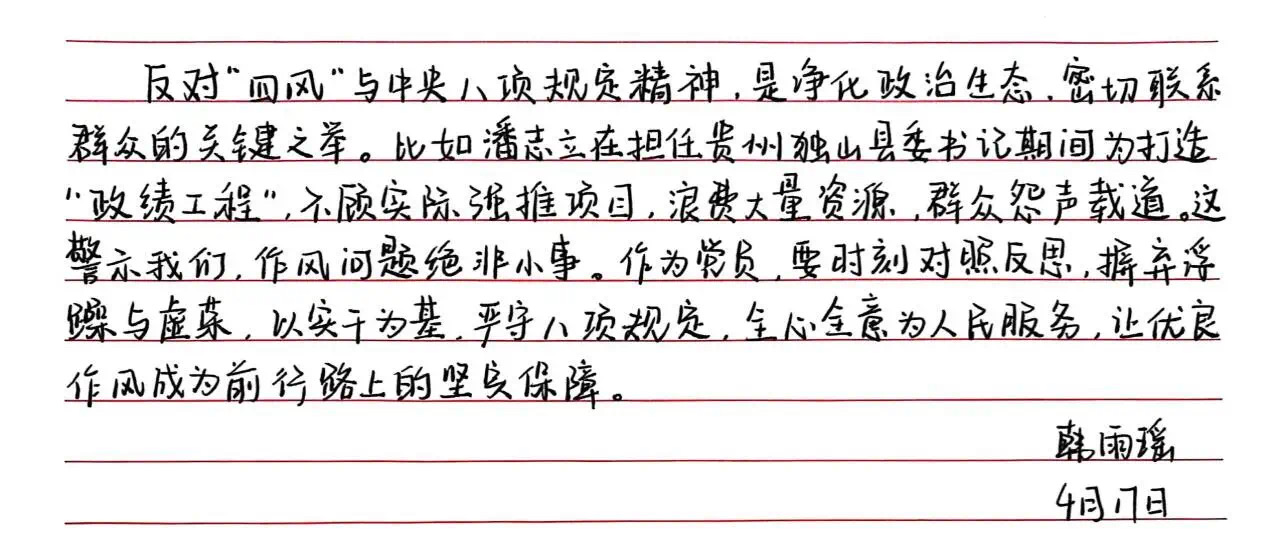 反对“四风”与中央八项规定精神，是净化政治生态、密切联系
群众的关键之举。比如潘志立在担任贵州独山县委书记期间为打造
“政绩工程”，不顾实际强推项目，浪费大量资源，群众怨声载道。这
警示我们，作风问题绝非小事。作为党员，要时刻对照反思，摒弃浮
躁与虚荣，以实干为基，严守八项规定，全心全意为人民服务，让优良
作风成为前行路上的坚实保障。
韩雨瑶
4月17日